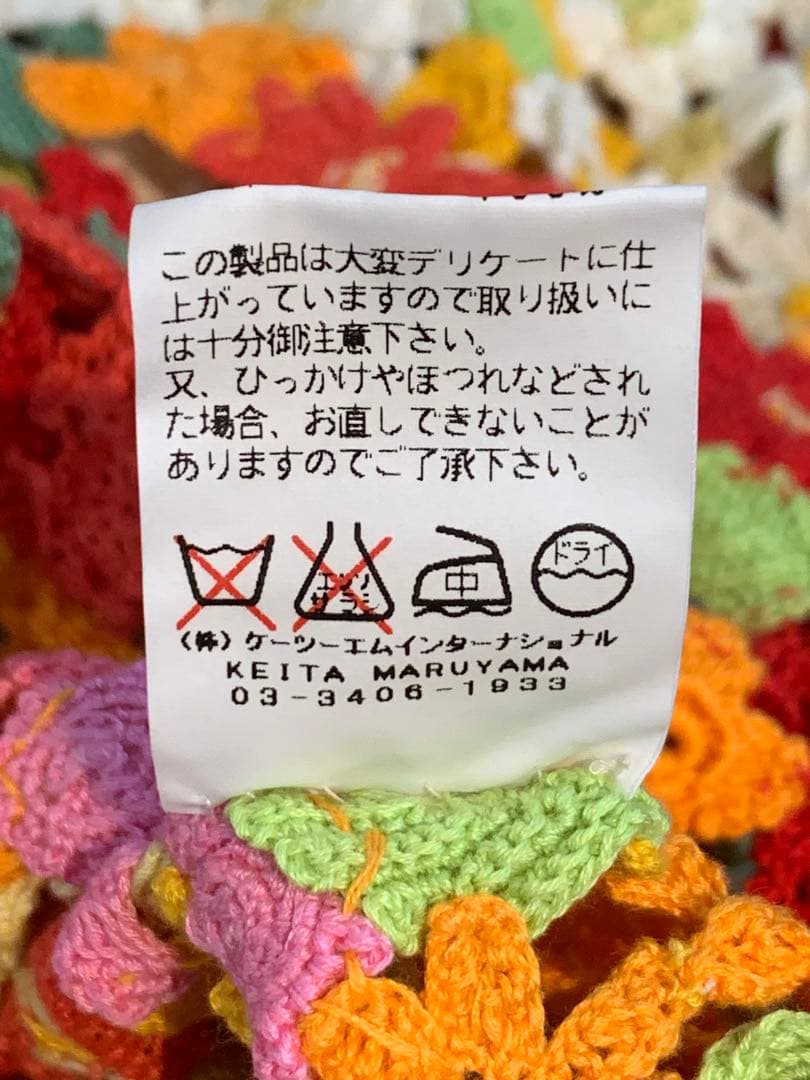 この製品は大変デリケートに仕
上がっていますので取り扱いに
は十分御注意下さい。
又、ひっかけやほつれなどされ
た場合、お直しできないことが
ありますのでご了承下さい。
エンソ
サラシ
中
ドライ
(株)ケーツーエムインターナショナル
KEITA MARUYAMA
03-3406-1933